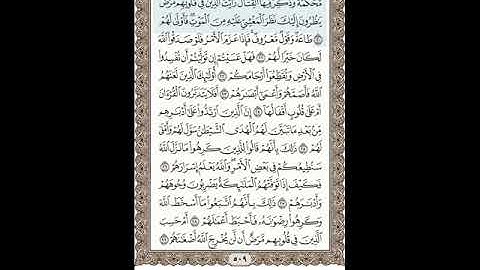 مُّحْكَمَةٌ وَذُكِرَ فِيهَا الْقِتَالُ رَأَيْتَ الَّذِينَ فِي قُلُوبِهِم مَّرَضٌ
يَنظُرُونَ إِلَيْكَ نَظَرَ الْمَغْشِيِّ عَلَيْهِ مِنَ الْمَوْتِ فَأَوْلَىٰ لَهُمْ
۝٢٠ طَاعَةٌ وَقَوْلٌ مَّعْرُوفٌ فَإِذَا عَزَمَ الْأَمْرُ فَلَوْ صَدَقُوا اللَّهَ
لَكَانَ خَيْرًا لَّهُمْ ۝٢١ فَهَلْ عَسَيْتُمْ إِن تَوَلَّيْتُمْ أَن تُفْسِدُوا
فِي الْأَرْضِ وَتُقَطِّعُوا أَرْحَامَكُمْ ۝٢٢ أُولَٰئِكَ الَّذِينَ لَعَنَهُمُ
اللَّهُ فَأَصَمَّهُمْ وَأَعْمَىٰ أَبْصَارَهُمْ ۝٢٣ أَفَلَا يَتَدَبَّرُونَ الْقُرْآنَ
أَمْ عَلَىٰ قُلُوبٍ أَقْفَالُهَا ۝٢٤ إِنَّ الَّذِينَ ارْتَدُّوا عَلَىٰ أَدْبَارِهِم
مِّن بَعْدِ مَا تَبَيَّنَ لَهُمُ الْهُدَى الشَّيْطَانُ سَوَّلَ لَهُمْ وَأَمْلَىٰ
لَهُمْ ۝٢٥ ذَٰلِكَ بِأَنَّهُمْ قَالُوا لِلَّذِينَ كَرِهُوا مَا نَزَّلَ اللَّهُ
سَنُطِيعُكُمْ فِي بَعْضِ الْأَمْرِ وَاللَّهُ يَعْلَمُ إِسْرَارَهُمْ ۝٢٦
فَكَيْفَ إِذَا تَوَفَّتْهُمُ الْمَلَائِكَةُ يَضْرِبُونَ وُجُوهَهُمْ
وَأَدْبَارَهُمْ ۝٢٧ ذَٰلِكَ بِأَنَّهُمُ اتَّبَعُوا مَا أَسْخَطَ اللَّهَ
وَكَرِهُوا رِضْوَانَهُ فَأَحْبَطَ أَعْمَالَهُمْ ۝٢٨ أَمْ حَسِبَ
الَّذِينَ فِي قُلُوبِهِم مَّرَضٌ أَن لَّن يُخْرِجَ اللَّهُ أَضْغَانَهُمْ ۝٢٩
٥٠٩